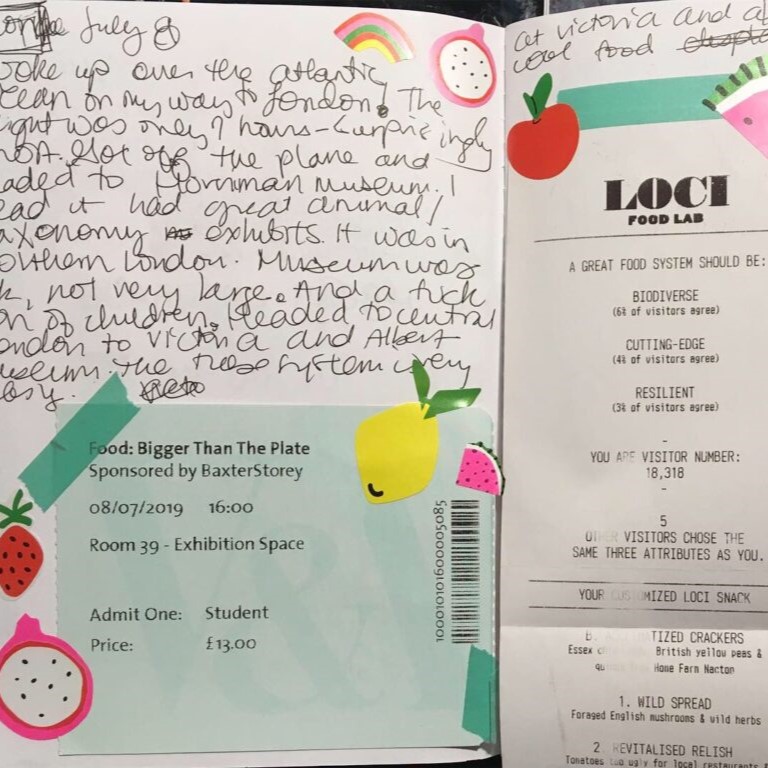 July 8
woke up over the atlantic
ocean on my way to London! The
flight was only 7 hours - surprisingly
short. Got off the plane and
headed to Horniman museum. I
read it had great animal/
taxonomy exhibits. It was in
Southern London. Museum was
ok, not very large. And a fuck
ton of children. Headed to central
London to Victoria and Albert
museum. The tube system is very
easy.
Food: Bigger Than The Plate
Sponsored by BaxterStorey
08/07/2019 16:00
Room 39 - Exhibition Space
Admit One: Student
Price: £13.00
at victoria and
cool food
LOCI
FOOD LAB
A GREAT FOOD SYSTEM SHOULD BE:
BIODIVERSE
(6% of visitors agree)
CUTTING-EDGE
(4% of visitors agree)
RESILIENT
(3% of visitors agree)
-
YOU ARE VISITOR NUMBER:
18,318
-
5
OTHER VISITORS CHOSE THE
SAME THREE ATTRIBUTES AS YOU.
YOUR CUSTOMIZED LOCI SNACK
TIZED CRACKERS
Essex British yellow peas &
Home Farm Nacton
1. WILD SPREAD
Foraged English mushrooms & wild herbs
2. REVITALISED RELISH
Tomatoes too ugly for local restaurants &